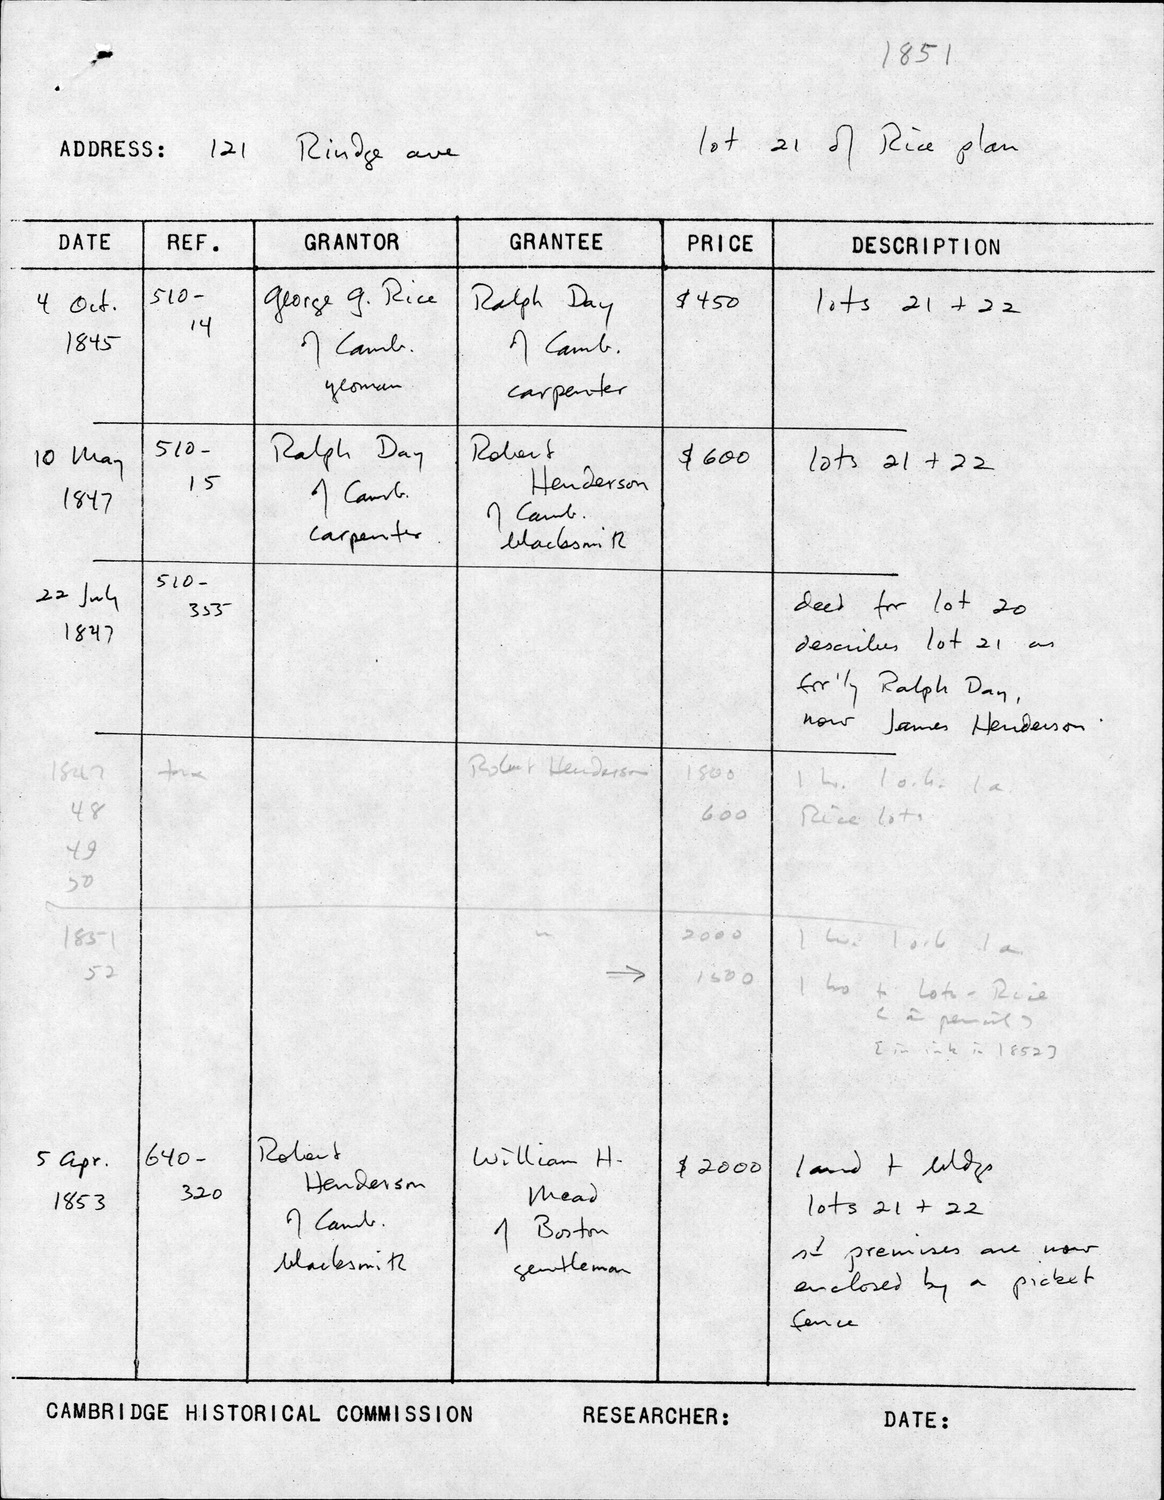 1851
ADDRESS: 121 Rindge ave
lot 21 of Rice plan
DATE REF. GRANTOR GRANTEE PRICE DESCRIPTION
4 Oct. 1845
510-14
George G. Rice
of Camb.
yeoman
Ralph Day
of Camb.
carpenter
$450
lots 21 + 22
10 May
1847
510-
15
Ralph Day
of Camb.
carpenter
Robert
Henderson
of Camb.
blacksmith
$600
lots 21 + 22
22 July
1847
510-
355
deed for lot 20
describes lot 21 as
for'ly Ralph Day,
now James Henderson
1847
48
49
50
tax
Robert Henderson
1800
600
1 ho. 1 o.h. 1a.
Rice lots
1851
52
"
2000
⇒ 1500
1 ho. 1 o.h. 1a
1 ho + lots - Rice
[in pencil]
[in ink in 1852]
5 Apr.
1853
640-
320
Robert
Henderson
of Camb.
blacksmith
William H.
Mead
of Boston
gentleman
$2000
land + bldgs
lots 21 + 22
sd premises are now
enclosed by a picket
fence
CAMBRIDGE HISTORICAL COMMISSION RESEARCHER: DATE: